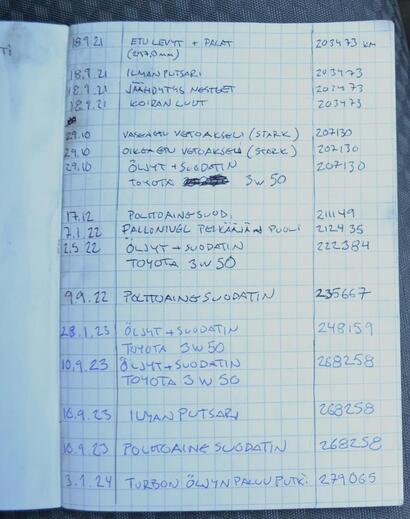 Ti
18.9.21 ETU LEVYT + PALAT 203473 KM
(247,0mm)
18.9.21 ILMANPUTSARI 203473
18.9.21 JÄÄHDYTYS NESTEET 203473
18.9.21 KOIRAN LUUT 203473
29.10 VASEN ETU VETOAKSELI (STARK) 207130
29.10 OIKEA ETU VETOAKSELI (STARK) 207130
29.10 ÖLJYT + SUODATIN 207130
TOYOTA 5W50
17.12 POLTTOAINESUOD. 211149
7.1.22 PALLONIVEL PELKÄÄJÄN PUOLI 212435
2.5.22 ÖLJYT + SUODATIN 222384
TOYOTA 5W50
9.9.22 POLTTOAINESUODATIN 235667
28.1.23 ÖLJYT + SUODATIN 248159
TOYOTA 5W50
10.9.23 ÖLJYT + SUODATIN 268258
TOYOTA 5W50
10.9.23 ILMANPUTSARI 268258
10.9.23 POLTTOAINE SUODATIN 268258
3.1.24 TURBON ÖLJYN PALUU PUTKI 279065